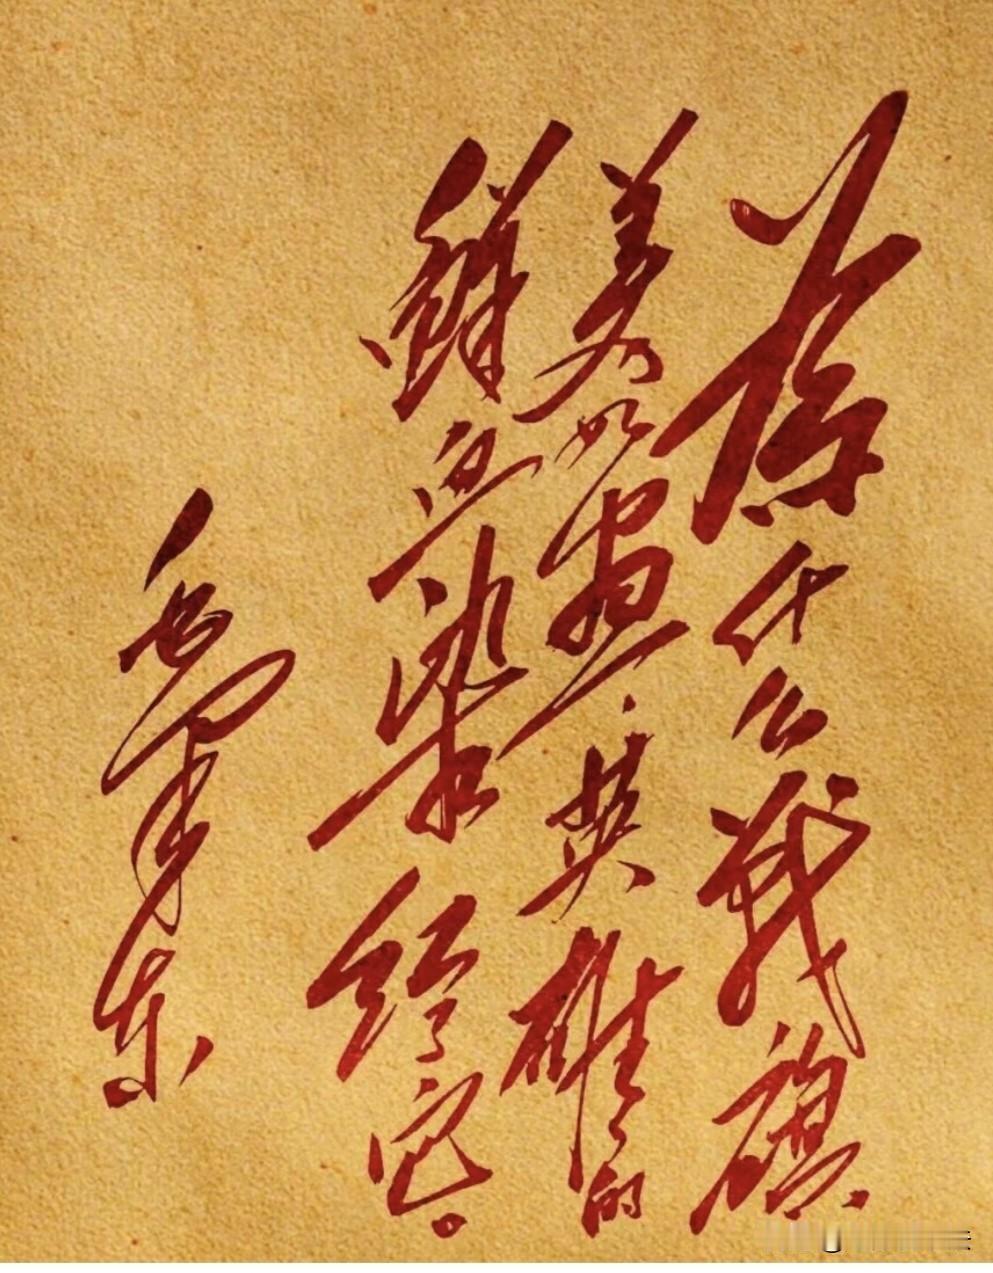 为什么战旗
美如画，英雄的
鲜血染红了它。
毛泽东